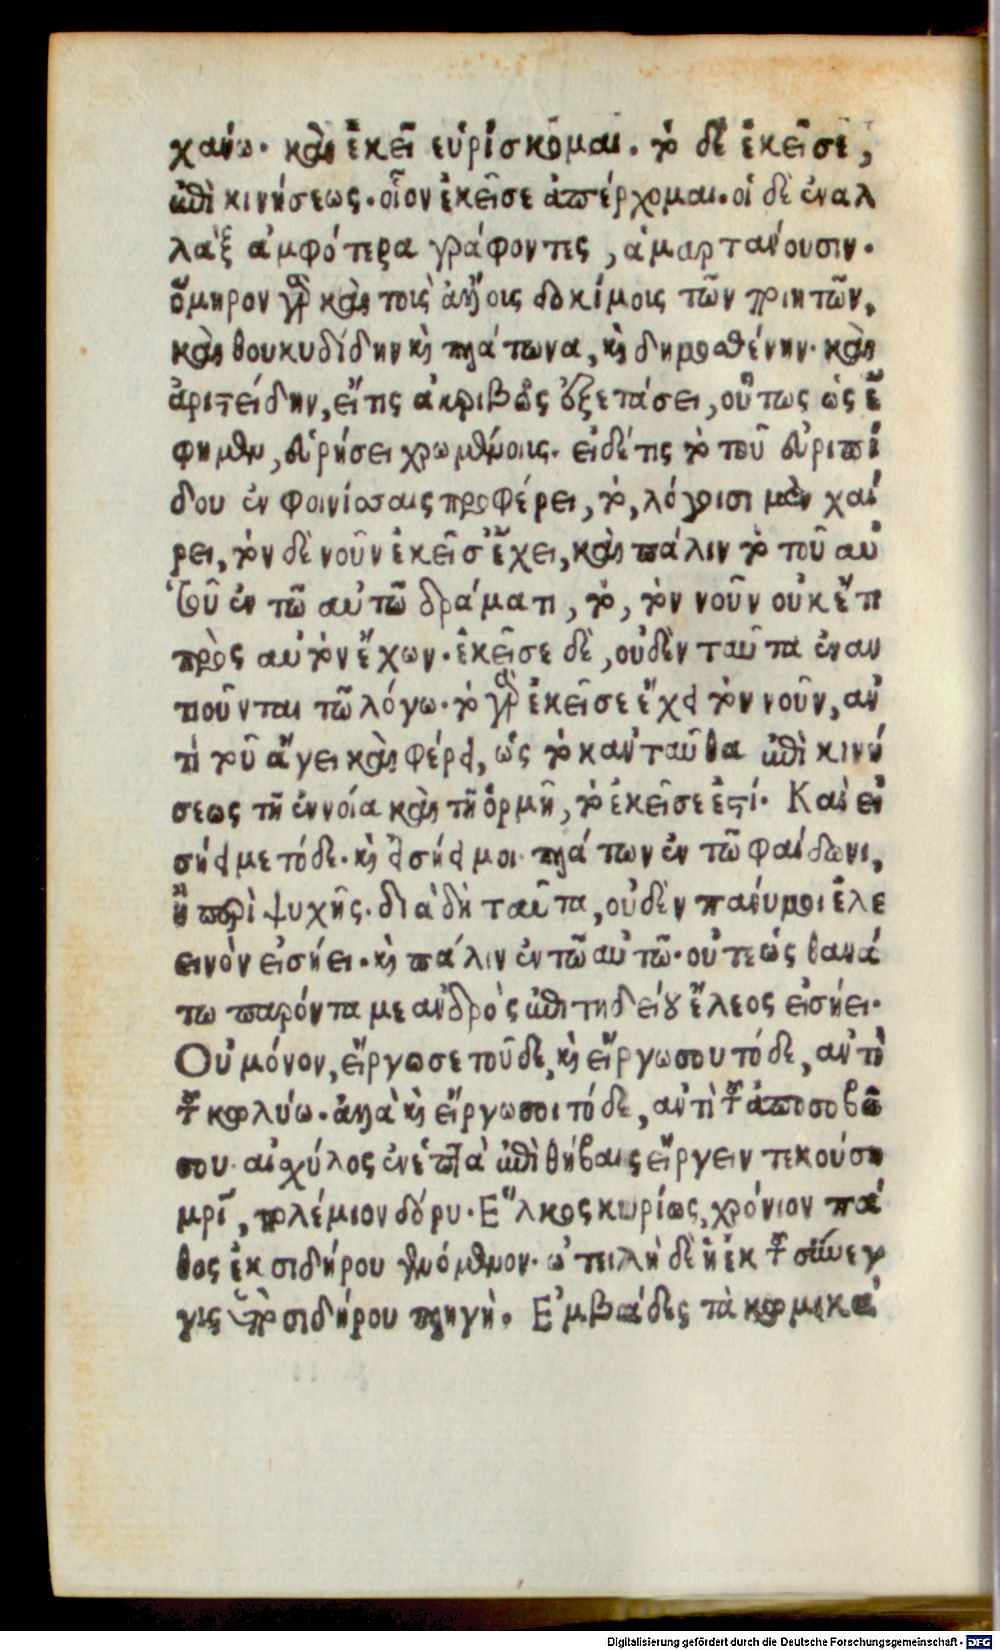 χάνω. καὶ ἐκεῖ εὑρίσκομαι. τὸ δὲ ἐκεῖσε,
ἐπὶ κινήσεως. οἷον ἐκεῖσε ἀπέρχομαι. οἱ δὲ ἐναλ
λὰξ ἀμφότερα γράφοντες, ἁμαρτάνουσιν.
ὅμηρον γὰρ καὶ τοῖς ἄλλοις δοκίμοις τῶν ποιητῶν,
καὶ θουκυδίδην κὶ πλάτωνα, κὶ δημοσθένην. καὶ
ἀριστείδην, εἴ τις ἀκριβῶς ἐξετάσει, οὕτως ὡς ἔ
φημεν, εὑρήσει χρωμένους. εἰ δέ τις τὸ τοῦ εὐριπί
δου ἐν φοινίσσαις προφέρει, τὸ, λόγοισι μὲν χαί
ρει, τὸν δὲ νοῦν ἐκεῖσ' ἔχει, καὶ πάλιν τὸ τοῦ αυ
τοῦ ἐν τῶ αὐτῶ δράματι, τὸ, τὸν νοῦν οὐκ ἔτι
πρὸς αὐτὸν ἔχων. ἐκεῖσε δὲ, οὐδὲν ταῦτα ἐναν
τιοῦνται τῶ λόγω. τὸ γὰρ ἐκεῖσε ἔχει τὸν νοῦν, αν
τὶ τοῦ ἄγει καὶ φέρει, ὡς τὸ κἀνταῦθα ἐπὶ κινή
σεως τῆ ἐννοία καὶ τῆ ὁρμῆ, τὸ ἐκεῖσε ἐστί. Καὶ εἰ
σήει με τόδε. κὶ εἰσήει μοι. πλάτων ἐν τῶ φαίδωνι,
ἢ περὶ ψυχῆς. διὰ δὴ ταῦτα, οὐδὲν πάνυ μοι ἐλε
εινὸν εἰσήει. κὶ πάλιν ἐν τῶ αὐτῶ. οὔτε ὡς θανά
τω παρόντα με ἀνδρὸς ἐπιτηδείου ἔλεος εἰσήει.
Οὐ μόνον, εἴργω σε τοῦδε, κὶ εἴργω σου τόδε, αντὶ
τοῦ κωλύω. ἀλλὰ κὶ εἴργω σοι τόδε, αντὶ τοῦ ἀποσοβῶ
σου. αἰσχύλος ἐν ἑπτὰ ἐπὶ θήβαις εἴργειν τεκούση
μρὶ, πολέμιον δόρυ. Ἕλκος κυρίως, χρόνιον πά
θος ἐκ σιδήρου γενόμενον. ὠτειλὴ δὲ ἡ ἐκ τοῦ σύνεγ
γις ὑπὸ σιδήρου πληγὴ. Ἐμβάδες τὰ κωμικὰ